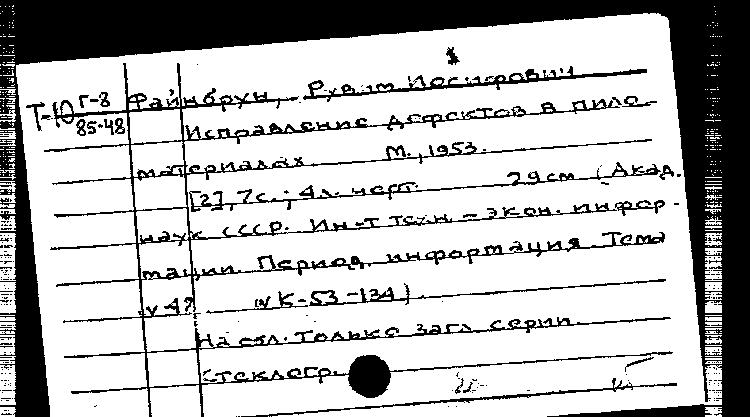 Т-10 Г-8
85-48
Файнбрун, Рувим Иосифович
Исправление дефектов в пило-
материалах. М., 1953.
[2], 7 с.; 4 л. черт. 29 см (Акад.
наук СССР. Ин-т техн.-экон. инфор-
мации. Период. информация. Тема
№ К-53-134).
На обл. только загл. серии.
Стеклогр.